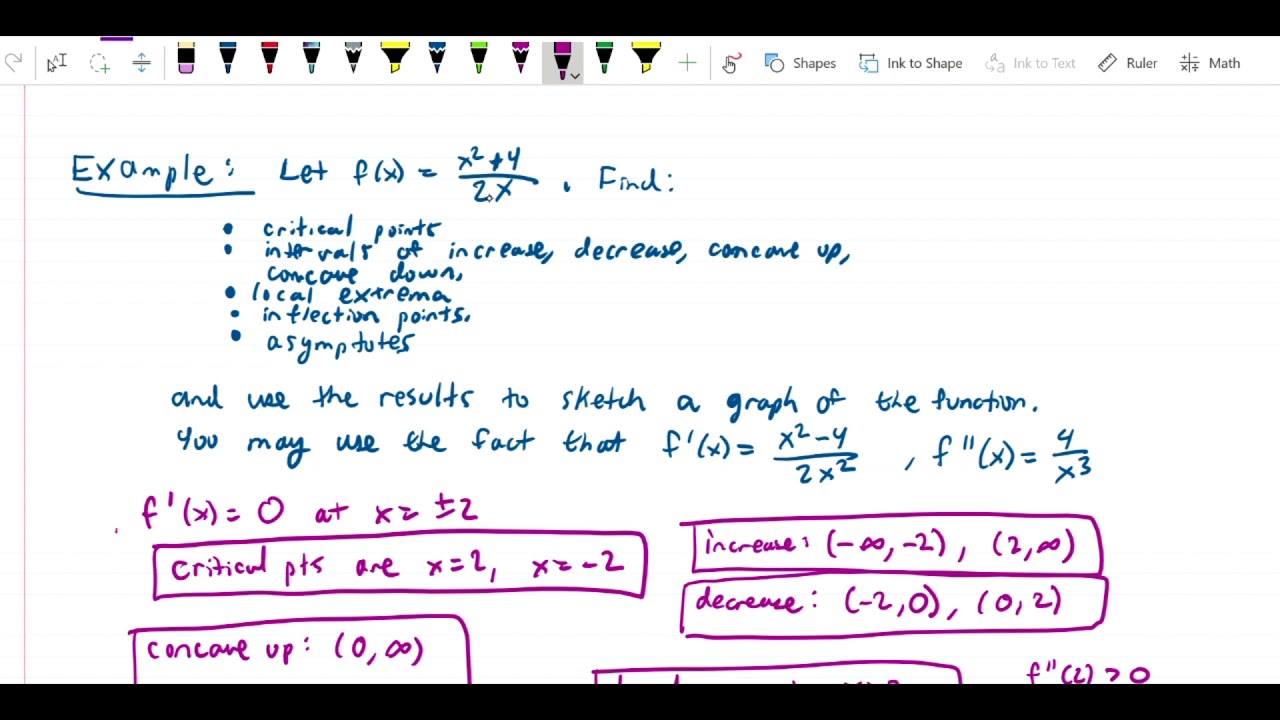 Shapes Ink to Shape Ink to Text Ruler Math
Example: Let f(x) = (x² + 4)/(2x). Find:
• critical points
• intervals of increase, decrease, concave up,
concave down,
• local extrema
• inflection points.
• asymptotes
and use the results to sketch a graph of the function.
You may use the fact that f'(x) = (x² - 4)/(2x²), f''(x) = 4/x³
f'(x) = 0 at x = ±2
critical pts are x=2, x=-2
increase: (-∞, -2), (2, ∞)
decrease: (-2, 0), (0, 2)
concave up: (0, ∞)
f''(2) > 0